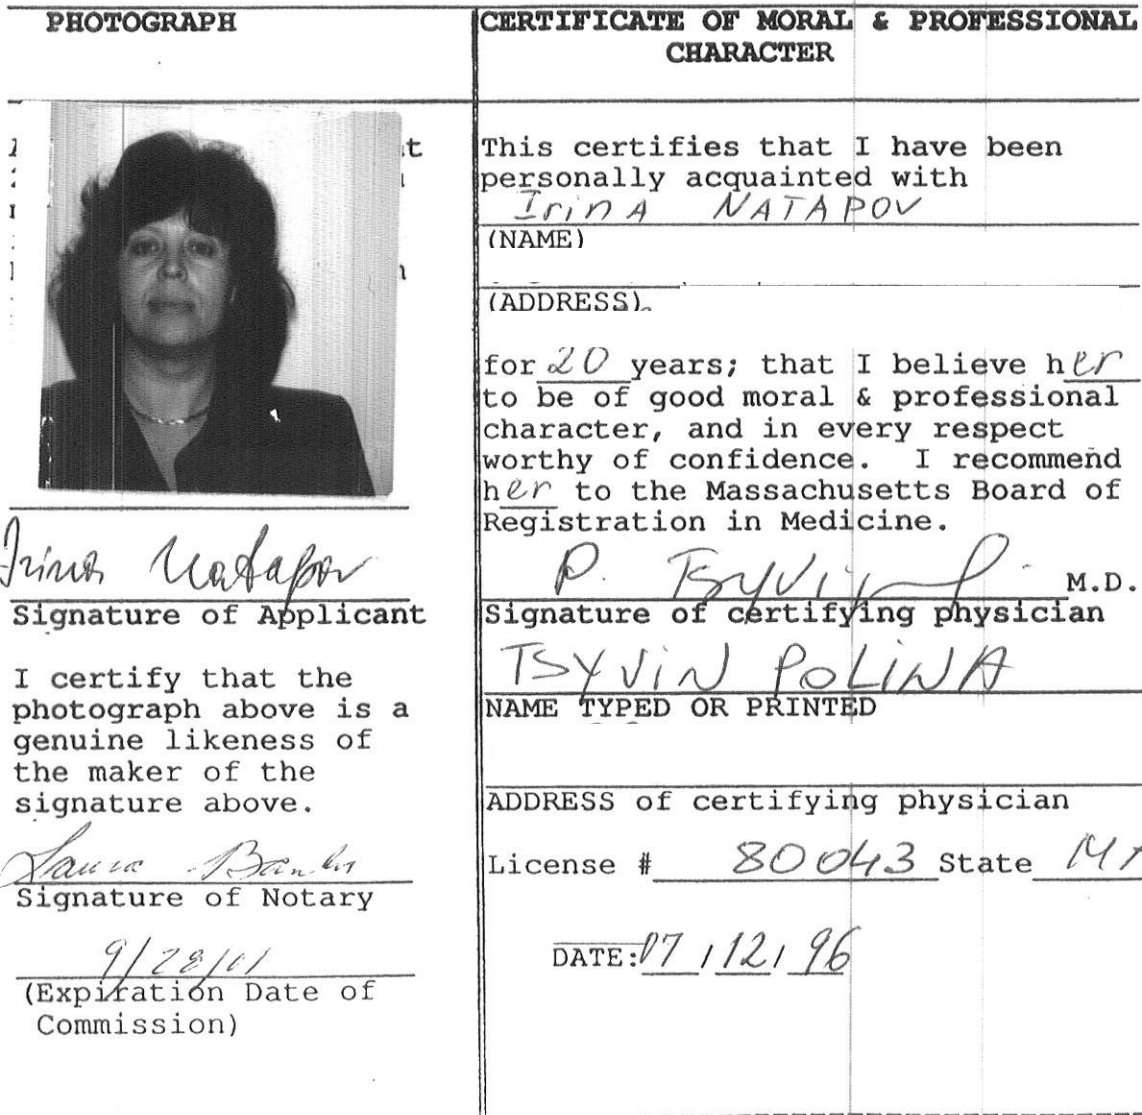 PHOTOGRAPH
Irina Natapov
Signature of Applicant
I certify that the
photograph above is a
genuine likeness of
the maker of the
signature above.
Laura
Signature of Notary
9/28/01
(Expiration Date of
Commission)
CERTIFICATE OF MORAL & PROFESSIONAL
CHARACTER
This certifies that I have been
personally acquainted with
Irina NATAPOV
(NAME)
(ADDRESS)
for 20 years; that I believe her
to be of good moral & professional
character, and in every respect
worthy of confidence. I recommend
her to the Massachusetts Board of
Registration in Medicine.
P. Tsyvin M.D.
Signature of certifying physician
TSYVIN POLINA
NAME TYPED OR PRINTED
ADDRESS of certifying physician
License # 80043 State MA
DATE: 07/12/96